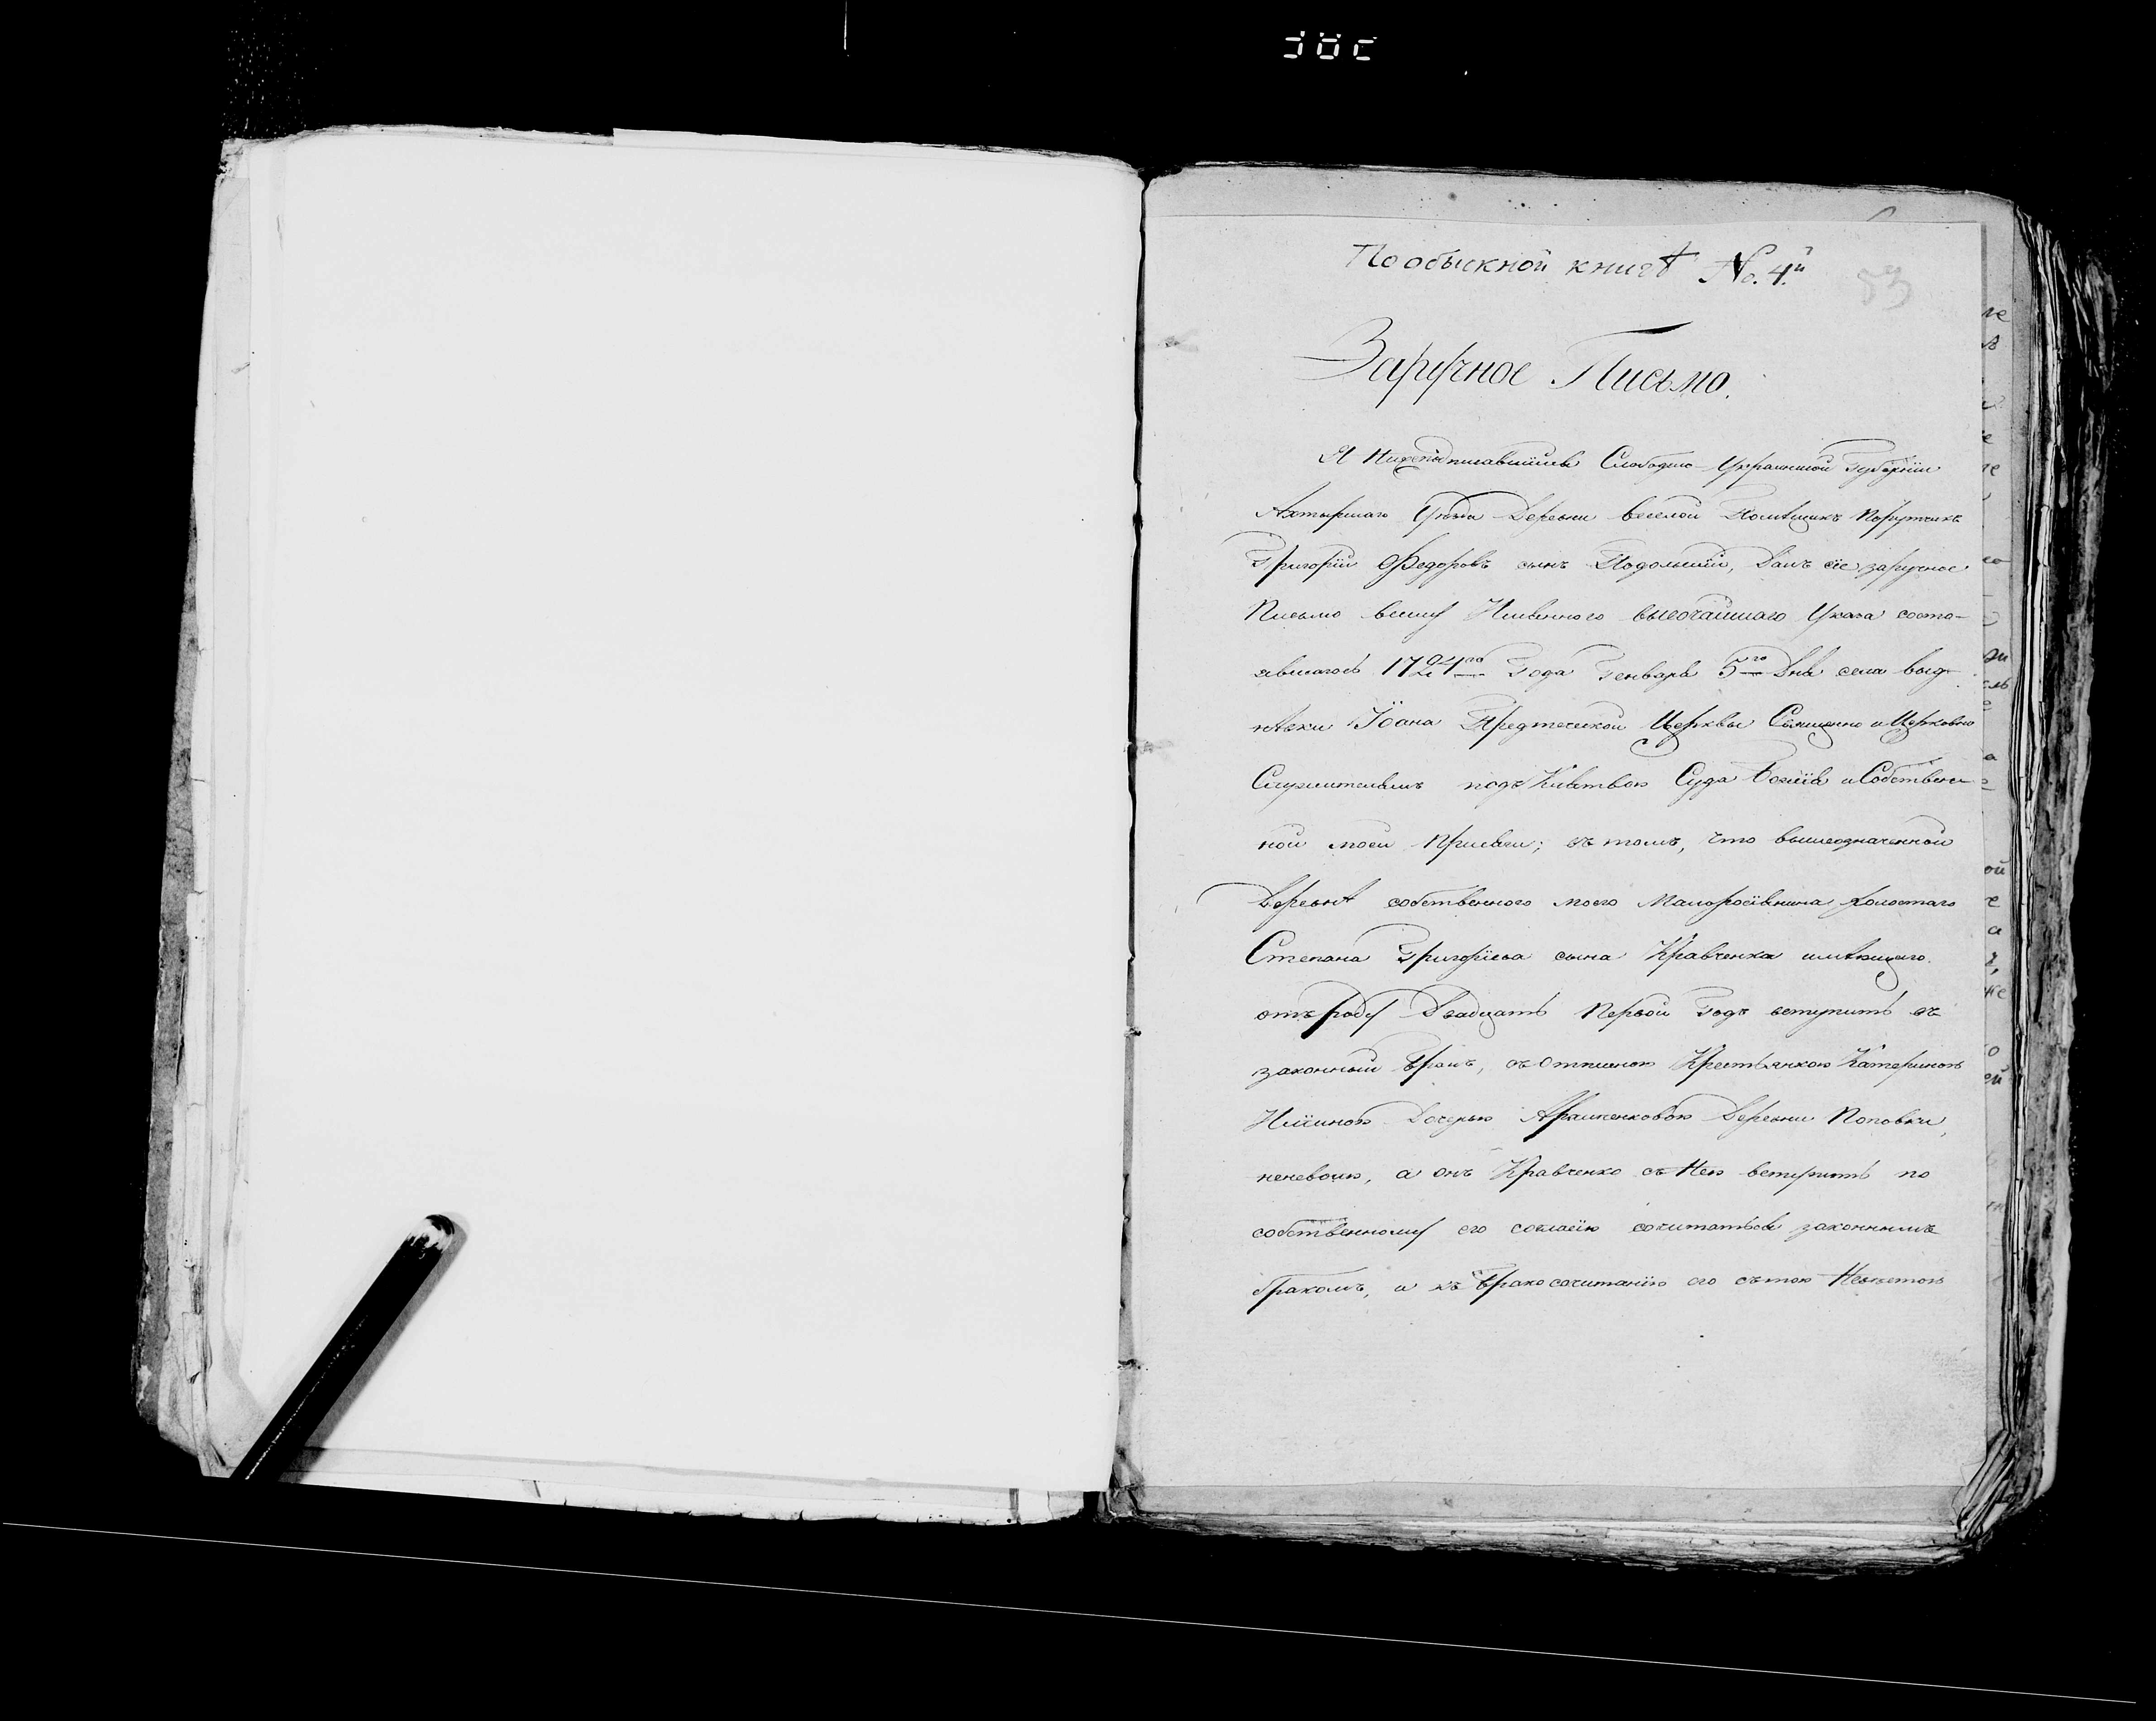 По обыскной книгѣ No. 4.й
53
Заручное Письмо.
Я Нижеподписавшійся Слободско-Украинской Губерніи
Ахтырскаго Уѣзда Деревни Веселой Помѣщикъ Порутчикъ
Григорій Федоровъ сынъ Подольскій, Далъ сіе заручное
Письмо всилу Имяннаго высочайшаго Указа состо-
явшагося 1724го Года Генваря 5го Дня села
Іоана Предтеческой Церквы Священно и Церковно
Служителямъ подъ Клятвою Суда Божія и Собствен-
ной моей Присяги; въ томъ, что вышеозначенной
Деревнѣ собственного моего Малоросіянина холостаго
Степана Григорїева сына Кравченка имѣющаго
отъ роду Двадцать Первой Годъ вступить въ
законный Бракъ, съ Крестьянкою Катериною
Дочерью Деревни Поповки,
неневолю, а онъ Кравченко съ Нею вступить по
собственному его согласїю сочитаться законнымъ
бракомъ, а къ Бракосочитанїю его съ тою Невѣстою